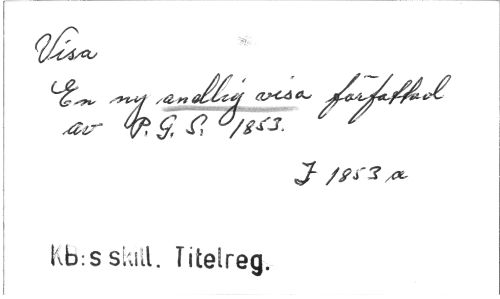 Visa
En ny andlig visa författad
av P. G. S. 1853.
J 1853 a
KB:s skill. Titelreg.